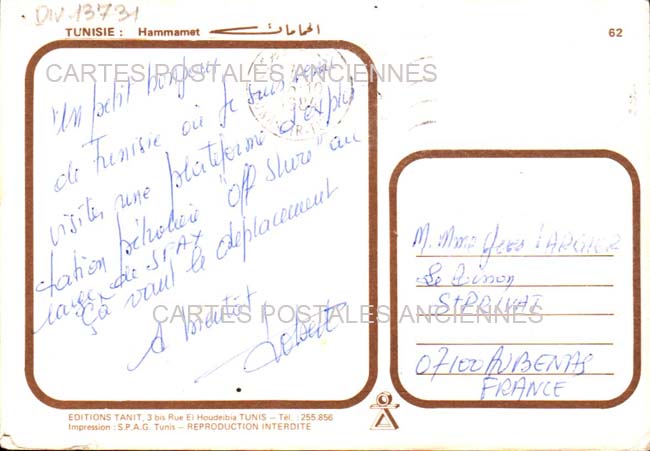 Div 13731
TUNISIE : Hammamet الحمامات
62
CARTES POSTALES ANCIENNES
Un petit bonjour
de Tunisie où je suis venu
visiter une plateforme d'explo
itation pétrolière "off shore" au
large de SFAX
ça vaut le déplacement
A bientôt
CARTES POSTALES ANCIENNES
M. Mme LARCHER
Le
St PRIVAT
07100 AUBENAS
FRANCE
EDITIONS TANIT, 3 bis Rue El Houdeibia TUNIS – Tél. : 255.856
Impression : S.P.A.G. Tunis – REPRODUCTION INTERDITE